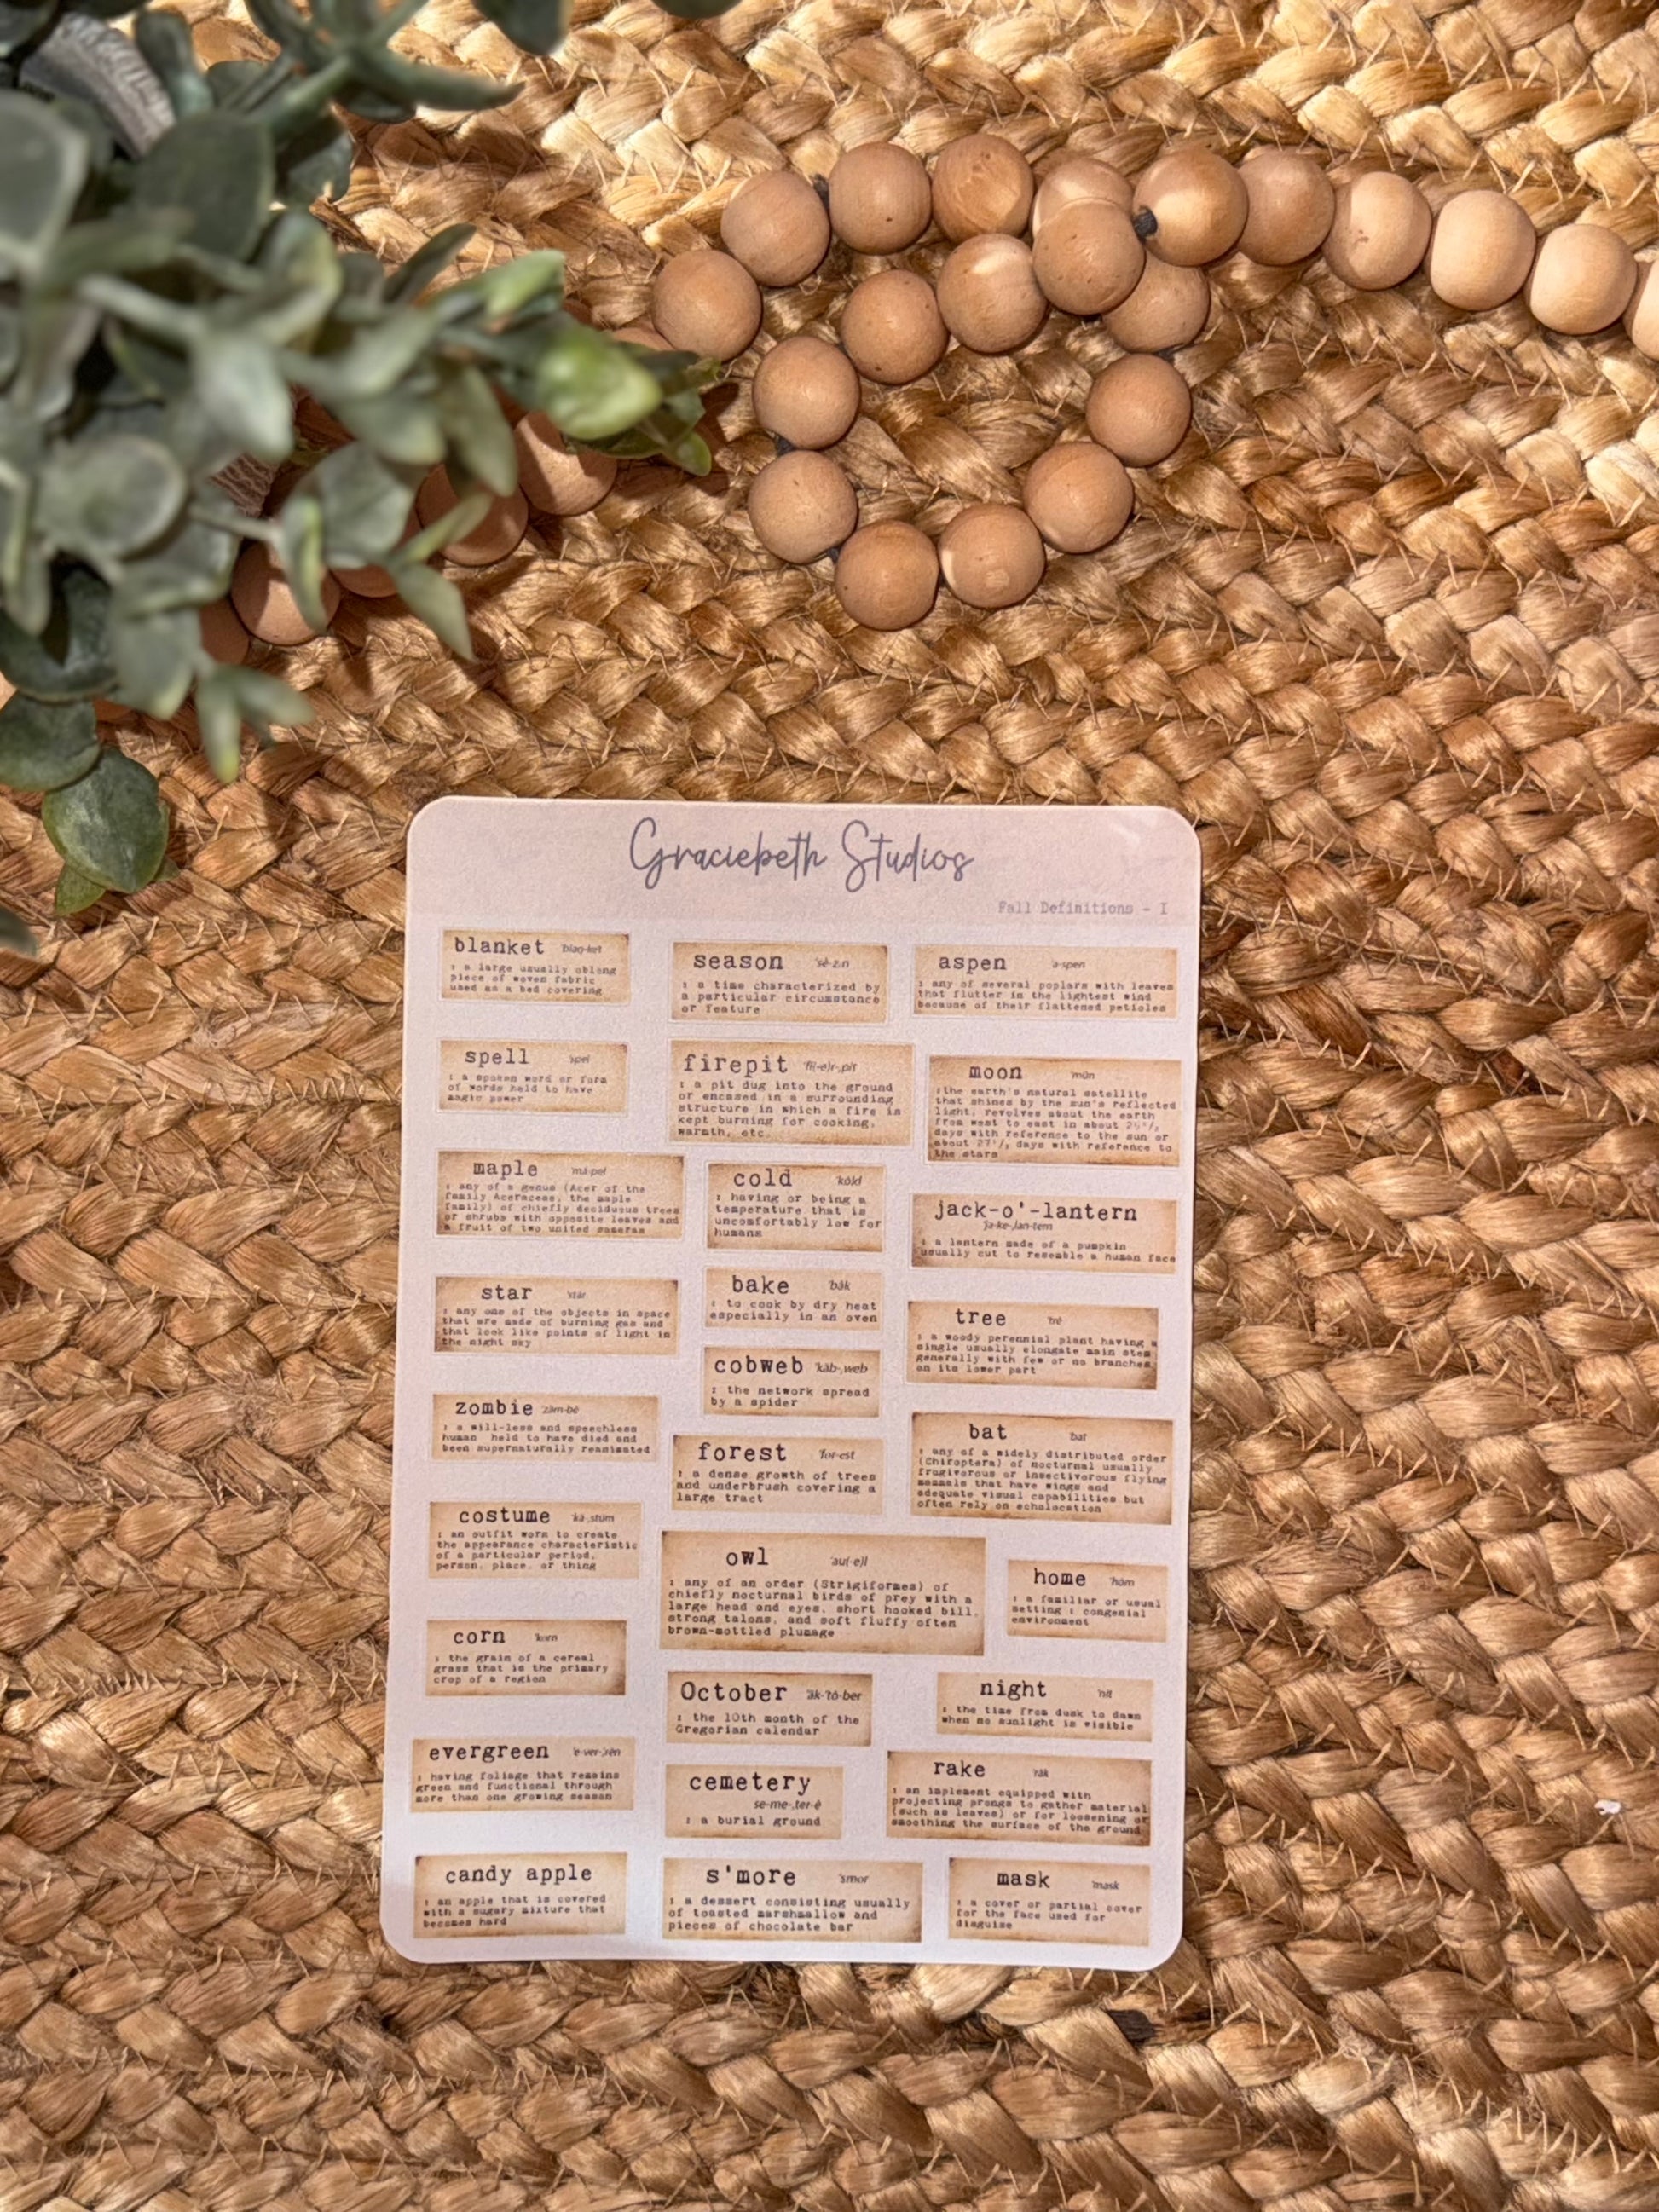 Graciebeth Studios
Fall Definitions - I
blanket 'blaŋ-kət
: a large usually oblong
piece of woven fabric
used as a bed covering
spell 'spel
: a spoken word or form
of words held to have
magic power
maple 'mā-pəl
: any of a genus (Acer of the
family Aceraceae, the maple
family) of chiefly deciduous trees
or shrubs with opposite leaves and
a fruit of two united samaras
star 'stär
: any one of the objects in space
that are made of burning gas and
that look like points of light in
the night sky
zombie 'zäm-bē
: a will-less and speechless
human held to have died and
been supernaturally reanimated
costume 'kä-,stüm
: an outfit worn to create
the appearance characteristic
of a particular period,
person, place, or thing
corn 'korn
: the grain of a cereal
grass that is the primary
crop of a region
evergreen 'e-vər-,grēn
: having foliage that remains
green and functional through
more than one growing season
candy apple
: an apple that is covered
with a sugary mixture that
becomes hard
season 'sē-zən
: a time characterized by
a particular circumstance
or feature
firepit 'fī(-ə)r-,pit
: a pit dug into the ground
or encased in a surrounding
structure in which a fire is
kept burning for cooking,
warmth, etc.
cold 'kōld
: having or being a
temperature that is
uncomfortably low for
humans
bake 'bāk
: to cook by dry heat
especially in an oven
cobweb 'käb-,web
: the network spread
by a spider
forest 'for-əst
: a dense growth of trees
and underbrush covering a
large tract
owl 'au(-ə)l
: any of an order (Strigiformes) of
chiefly nocturnal birds of prey with a
large head and eyes, short hooked bill,
strong talons, and soft fluffy often
brown-mottled plumage
October äk-'tō-bər
: the 10th month of the
Gregorian calendar
cemetery
'se-mə-,ter-ē
: a burial ground
s'more 'smor
: a dessert consisting usually
of toasted marshmallow and
pieces of chocolate bar
aspen 'a-spən
: any of several poplars with leaves
that flutter in the lightest wind
because of their flattened petioles
moon 'mün
:the earth's natural satellite
that shines by the sun's reflected
light, revolves about the earth
from west to east in about 29¹/₂
days with reference to the sun or
about 27¹/₃ days with reference to
the stars
jack-o'-lantern
'ja-kə-,lan-tərn
: a lantern made of a pumpkin
usually cut to resemble a human face
tree 'trē
: a woody perennial plant having a
single usually elongate main stem
generally with few or no branches
on its lower part
bat 'bat
: any of a widely distributed order
(Chiroptera) of nocturnal usually
frugivorous or insectivorous flying
mammals that have wings and
adequate visual capabilities but
often rely on echolocation
home 'hōm
: a familiar or usual
setting : congenial
environment
night 'nīt
: the time from dusk to dawn
when no sunlight is visible
rake 'rāk
: an implement equipped with
projecting prongs to gather material
(such as leaves) or for loosening or
smoothing the surface of the ground
mask 'mask
: a cover or partial cover
for the face used for
disguise